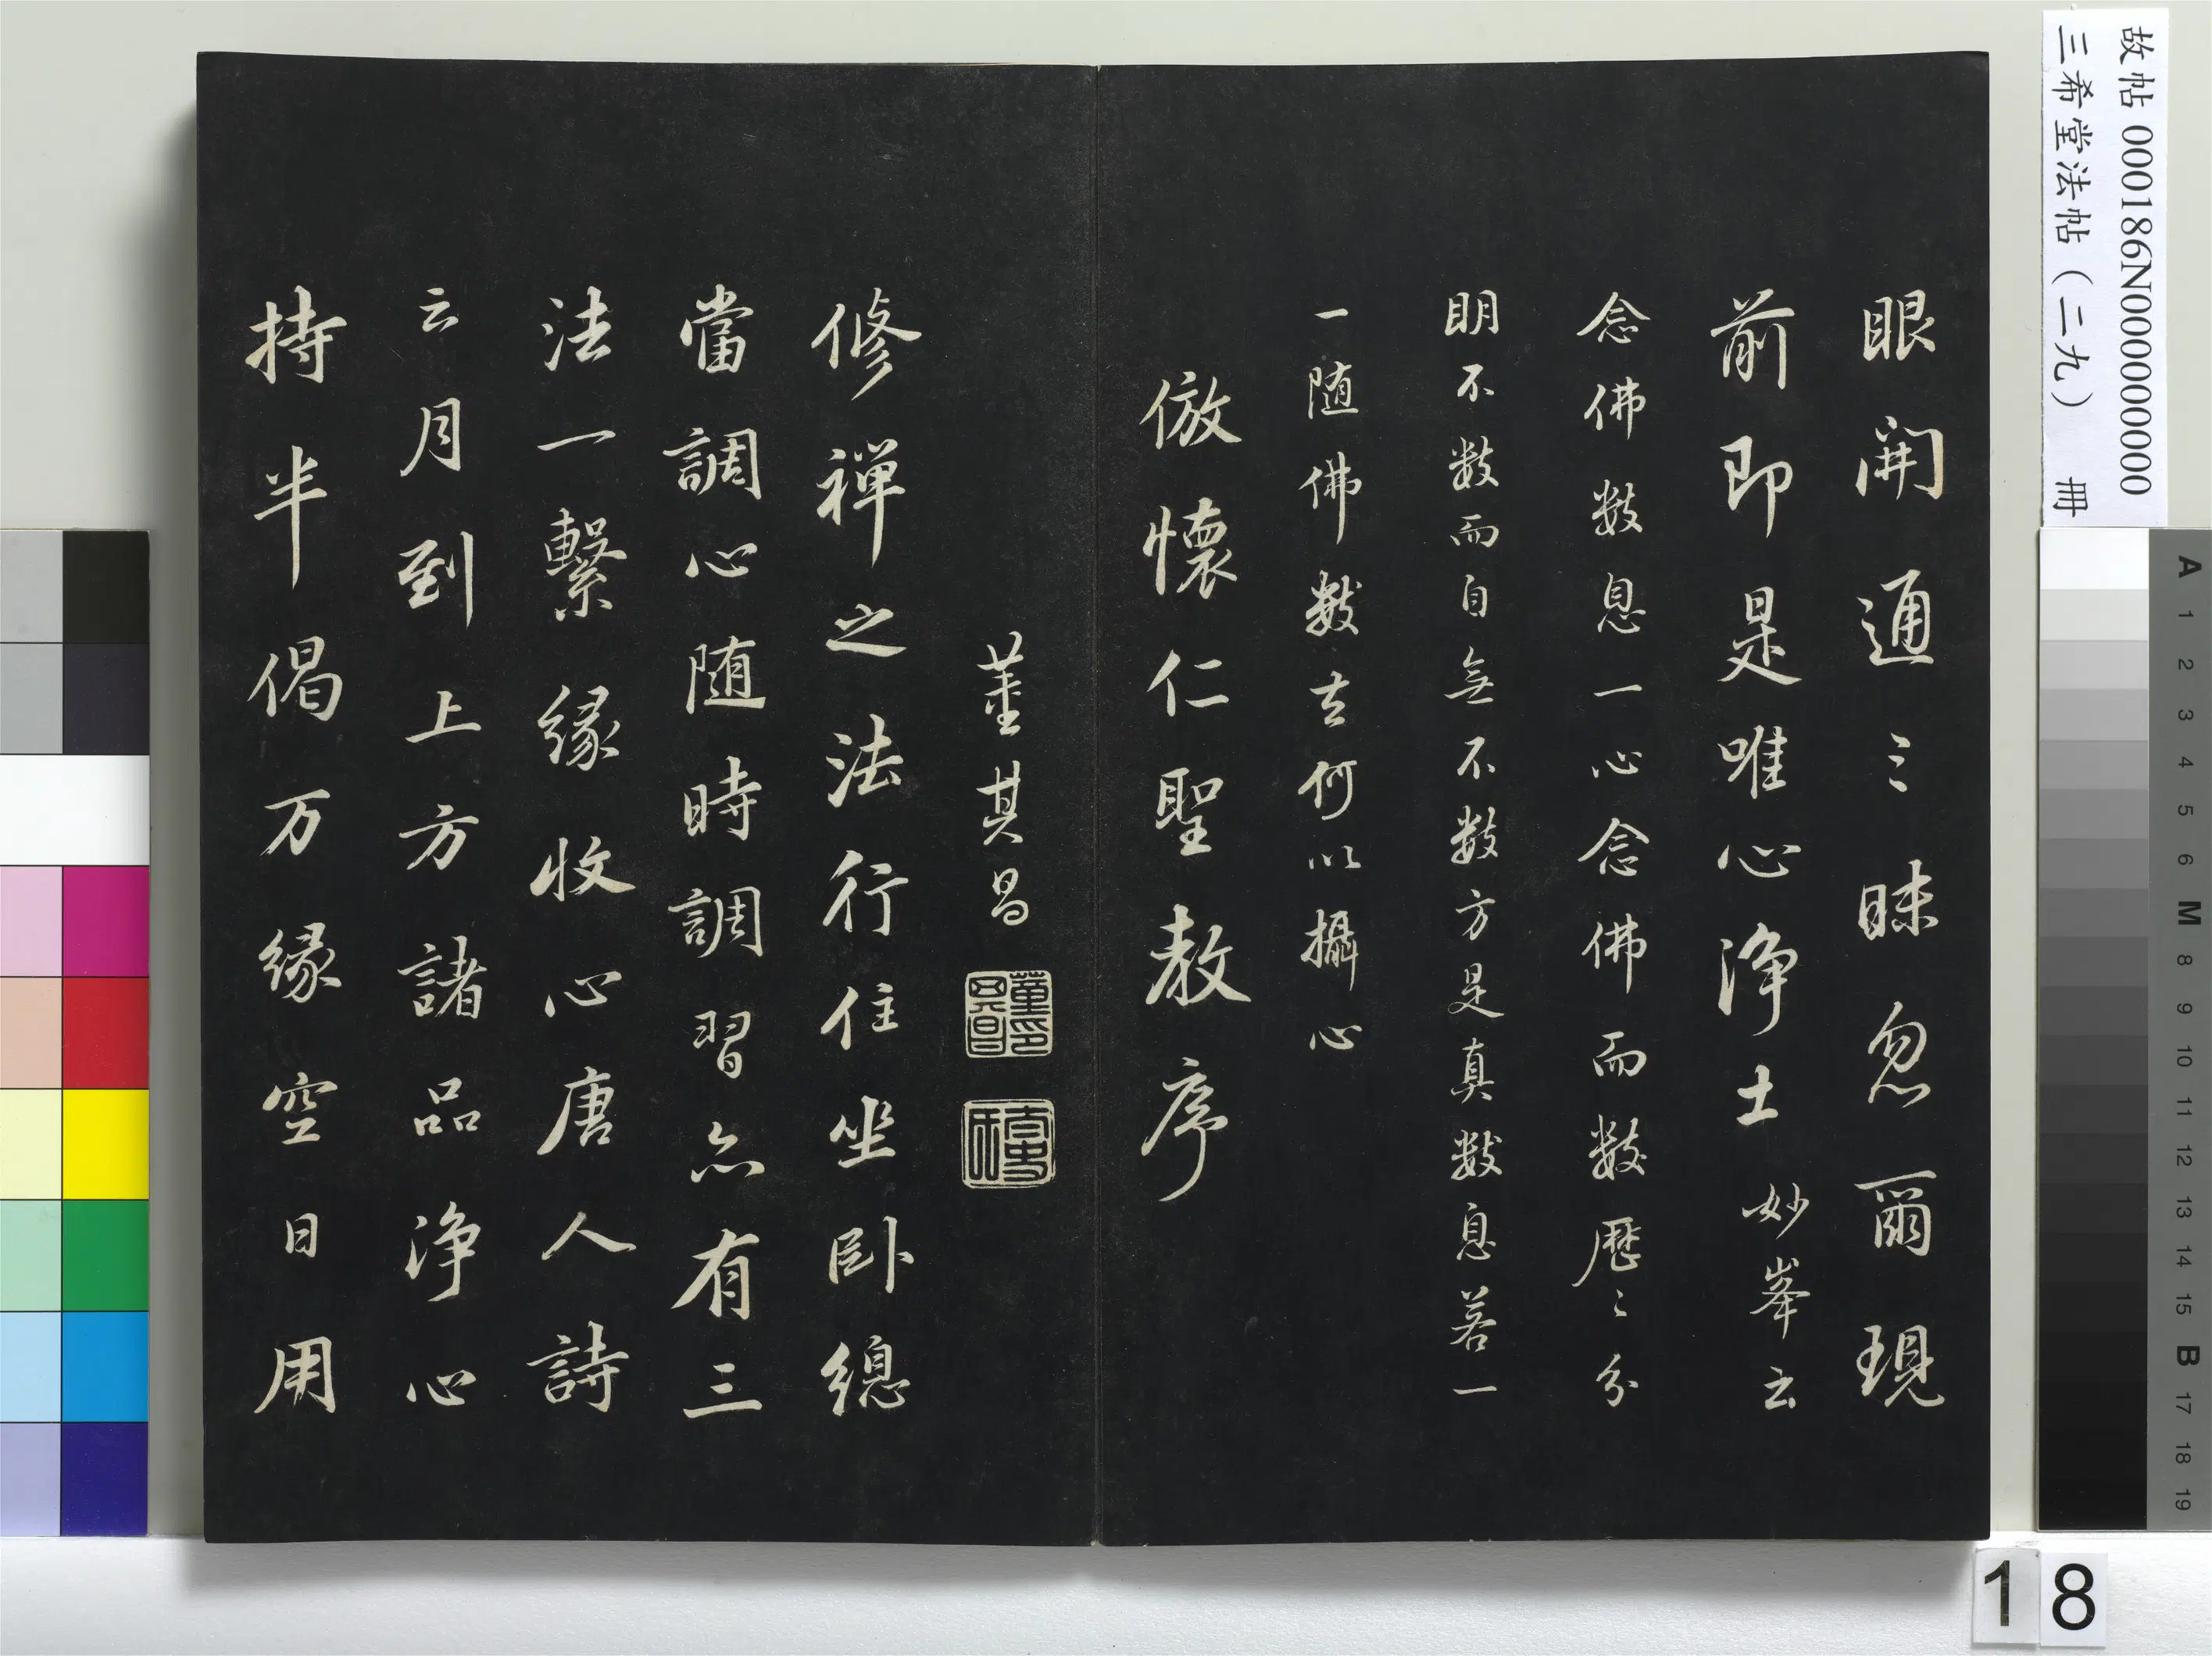 故帖 000186N000000000
三希堂法帖（二九） 冊
眼開通〻昧忽爾現
前即是唯心淨土 妙峯云
念佛數息一心念佛而數歷〻分
明不數而自無不數方是真數息若一
一随佛數去何以攝心
倣懷仁聖教序
董其昌
修禪之法行住坐臥總
當調心随時調習亦有三
法一繫緣收心唐人詩
云月到上方諸品淨心
持半偈万緣空日用
A 1 2 3 4 5 6 M 8 9 10 11 12 13 14 15 B 17 18 19
18